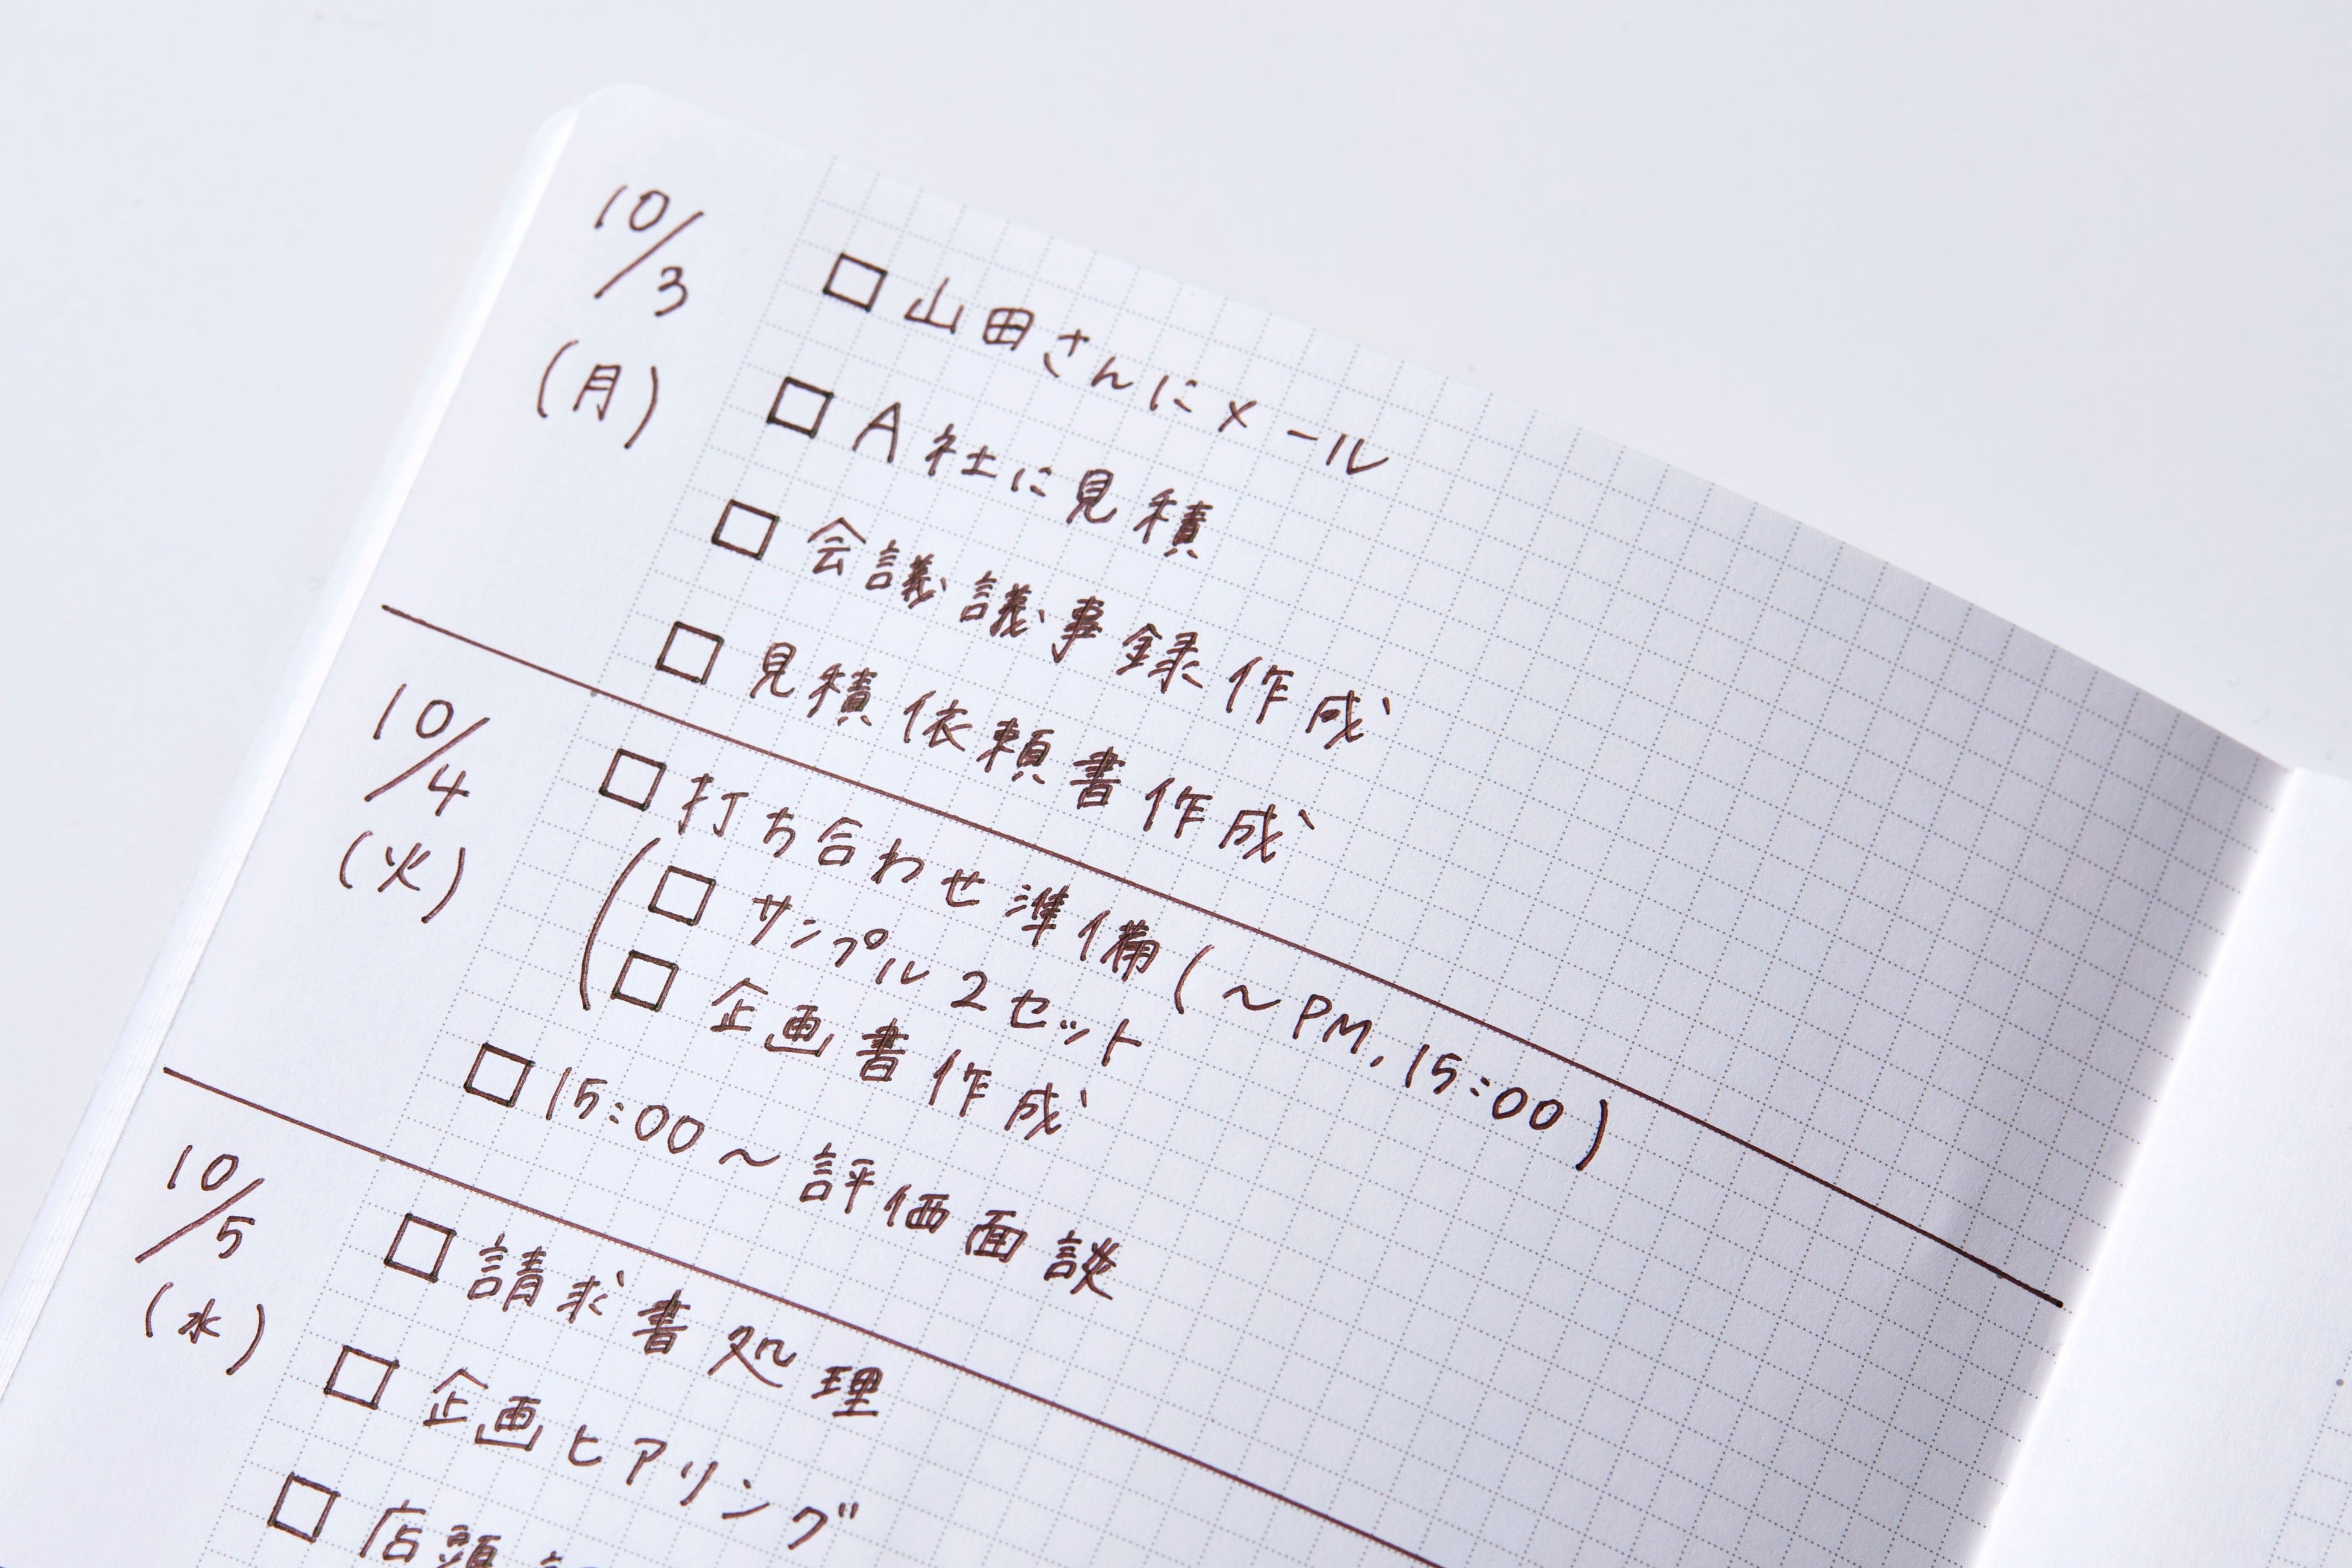 10/3
(月)
□ 山田さんにメール
□ A社に見積
□ 会議議事録作成
□ 見積依頼書作成
10/4
(火)
□ 打ち合わせ準備(～PM.15:00)
□ サンプル2セット
□ 企画書作成
□ 15:00～評価面談
10/5
(水)
□ 請求書処理
□ 企画ヒアリング
□ 店頭